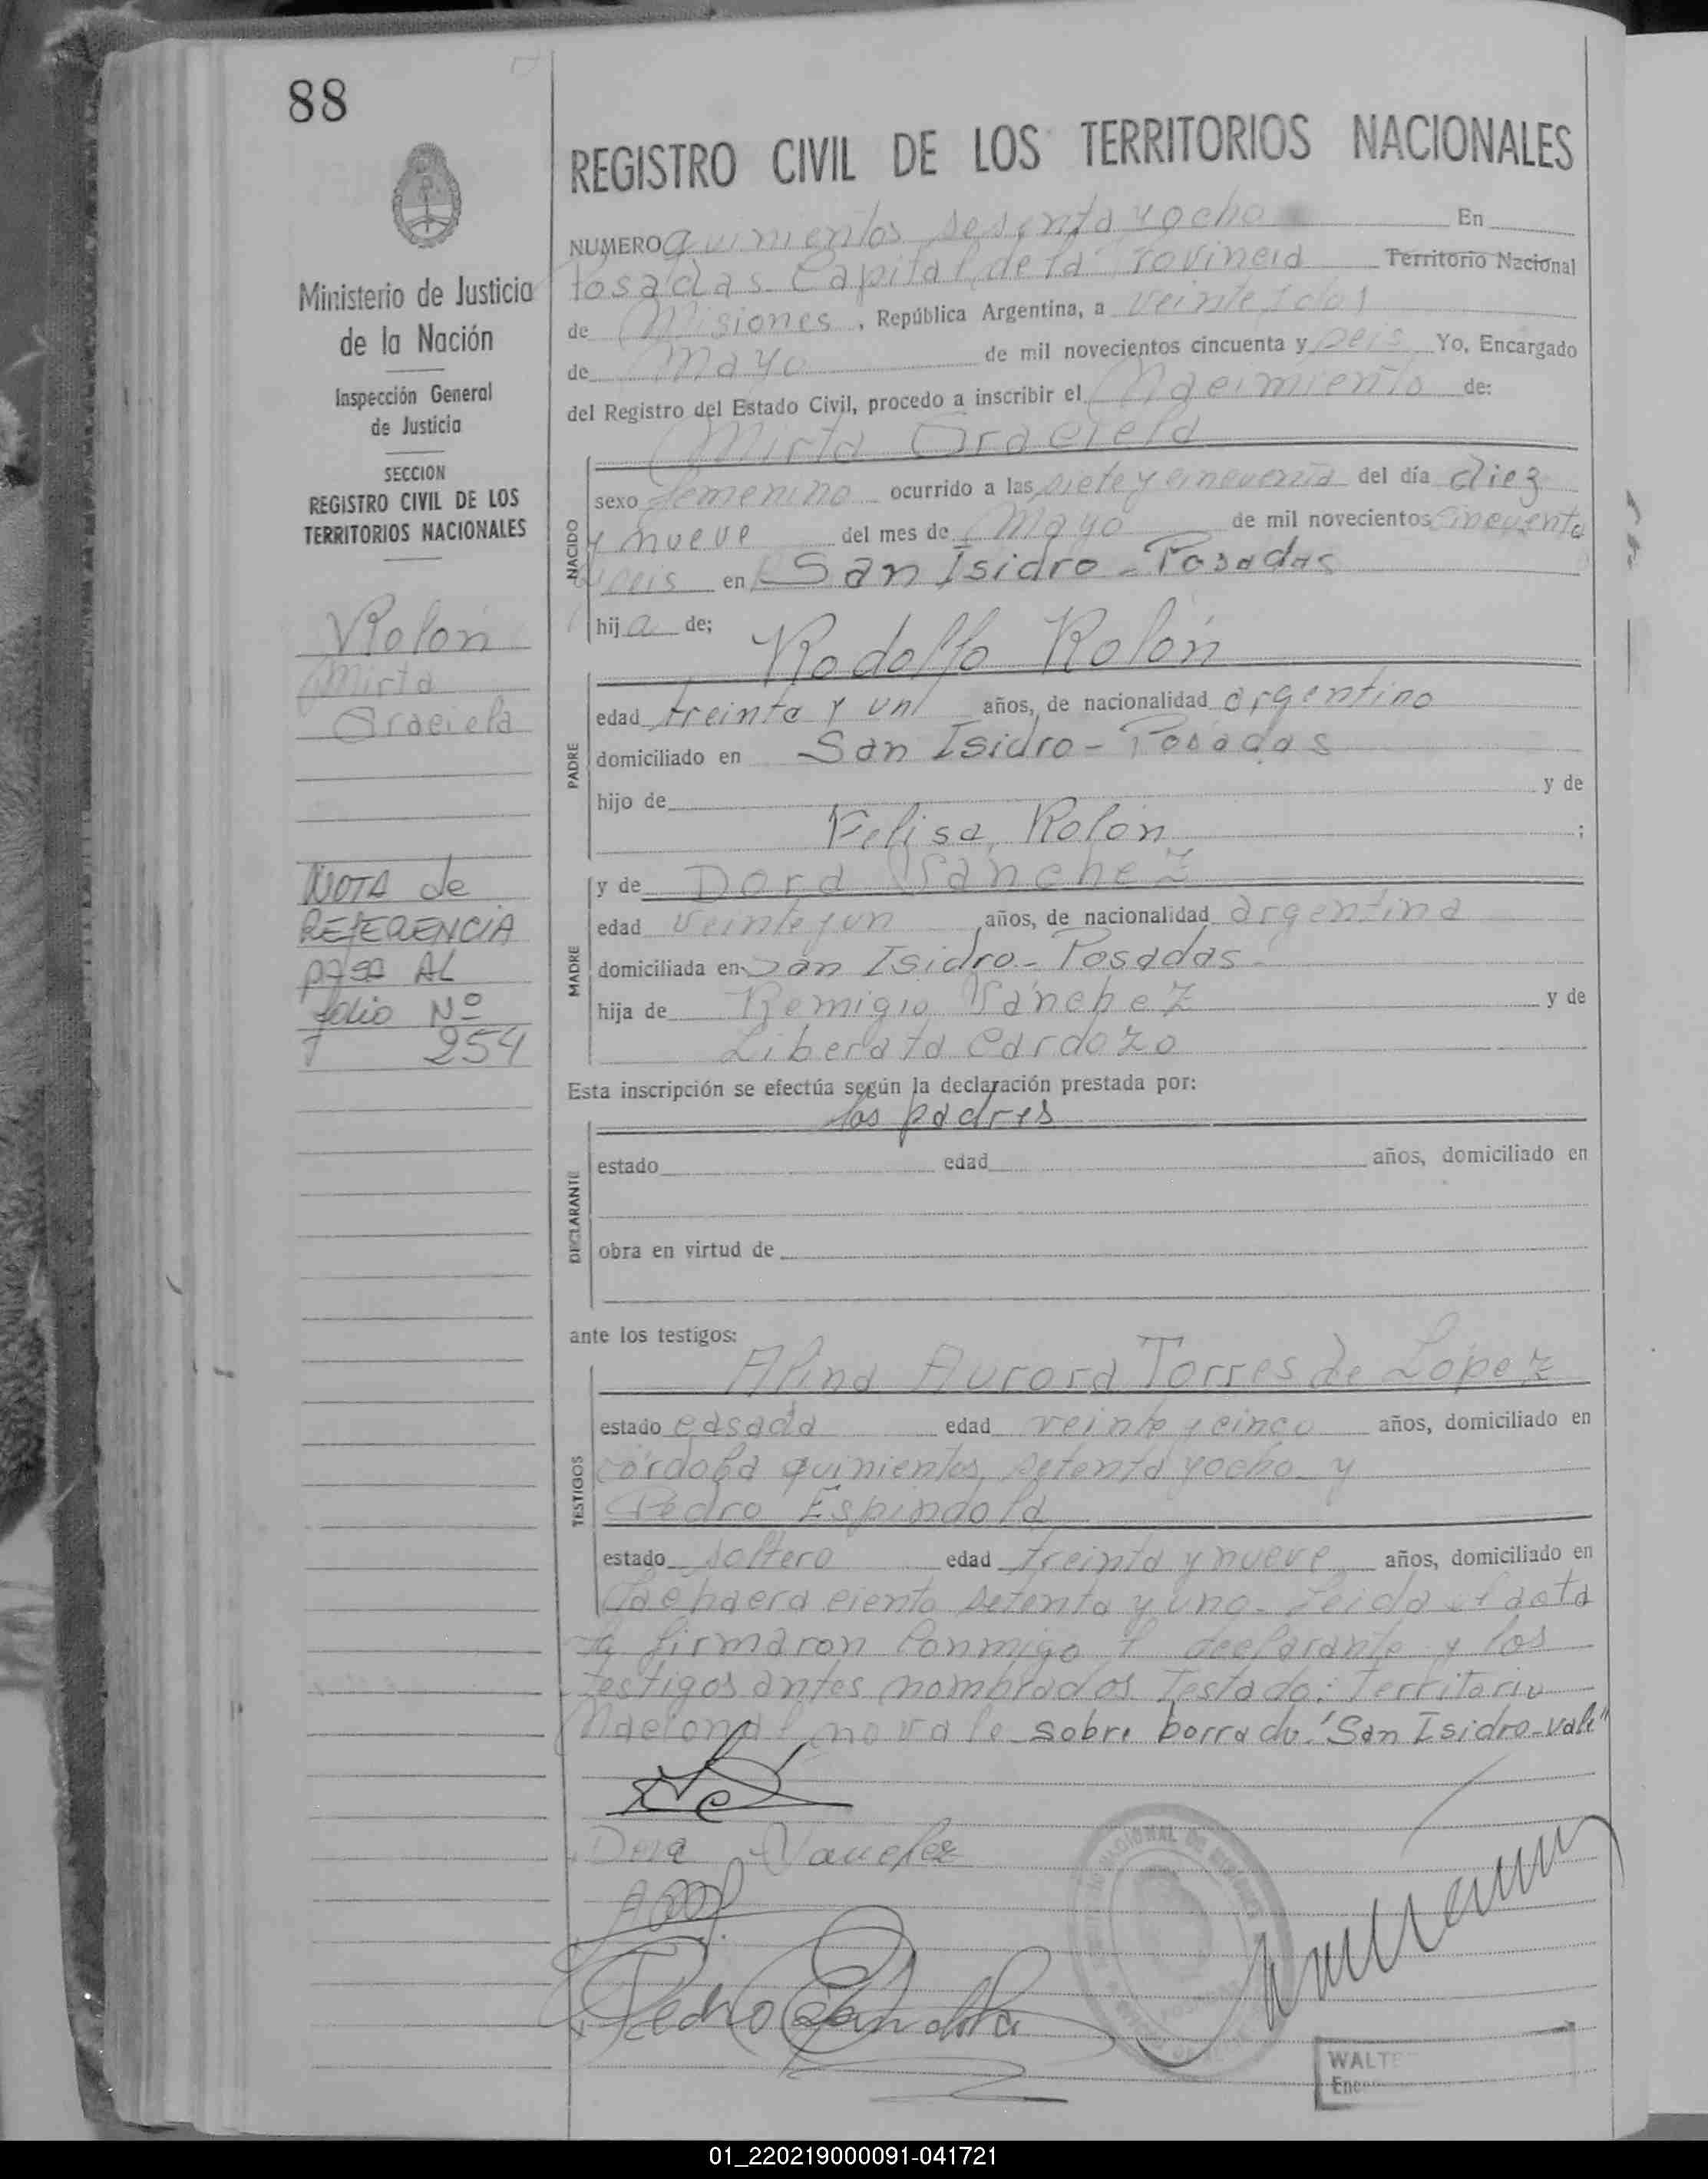 88
Ministerio de Justicia
de la Nación
Inspección General
de Justicia
SECCION
REGISTRO CIVIL DE LOS
TERRITORIOS NACIONALES
Rolón
Mirta
Graciela
NOTA de
REFERENCIA
pasa AL
folio Nº
254
REGISTRO CIVIL DE LOS TERRITORIOS NACIONALES
NUMERO quinientos sesenta y ocho En
Posadas Capital de la Provincia Territorio Nacional
de Misiones, República Argentina, a veinte y dos
de Mayo de mil novecientos cincuenta y seis Yo, Encargado
del Registro del Estado Civil, procedo a inscribir el Nacimiento de:
Mirta Graciela
NACIDO
sexo femenino ocurrido a las siete y cincuenta del día diez
y nueve del mes de Mayo de mil novecientos cincuenta
y seis en San Isidro - Posadas
hija de;
Rodolfo Rolón
PADRE
edad treinta y un años, de nacionalidad argentino
domiciliado en San Isidro - Posadas
hijo de y de
Felisa Rolón ;
MADRE
y de Dora Sánchez
edad veinte y un años, de nacionalidad argentina
domiciliada en San Isidro - Posadas
hija de Remigio Sánchez y de
Liberata Cardozo
Esta inscripción se efectúa según la declaración prestada por:
los padres
DECLARANTE
estado edad años, domiciliado en
obra en virtud de
ante los testigos:
Alina Aurora Torres de López
TESTIGOS
estado casada edad veinte y cinco años, domiciliado en
córdoba quinientos setenta y ocho y
Pedro Espindola
estado soltero edad treinta y nueve años, domiciliado en
ciento setenta y uno - Leida el acta
la firmaron Conmigo el declarante y los
testigos antes nombrados Testado: Territorio
Nacional no vale sobre borrado: "San Isidro - vale"
Dora Sanchez
Pedro Espindola
WALTE
Enca
01_220219000091-041721